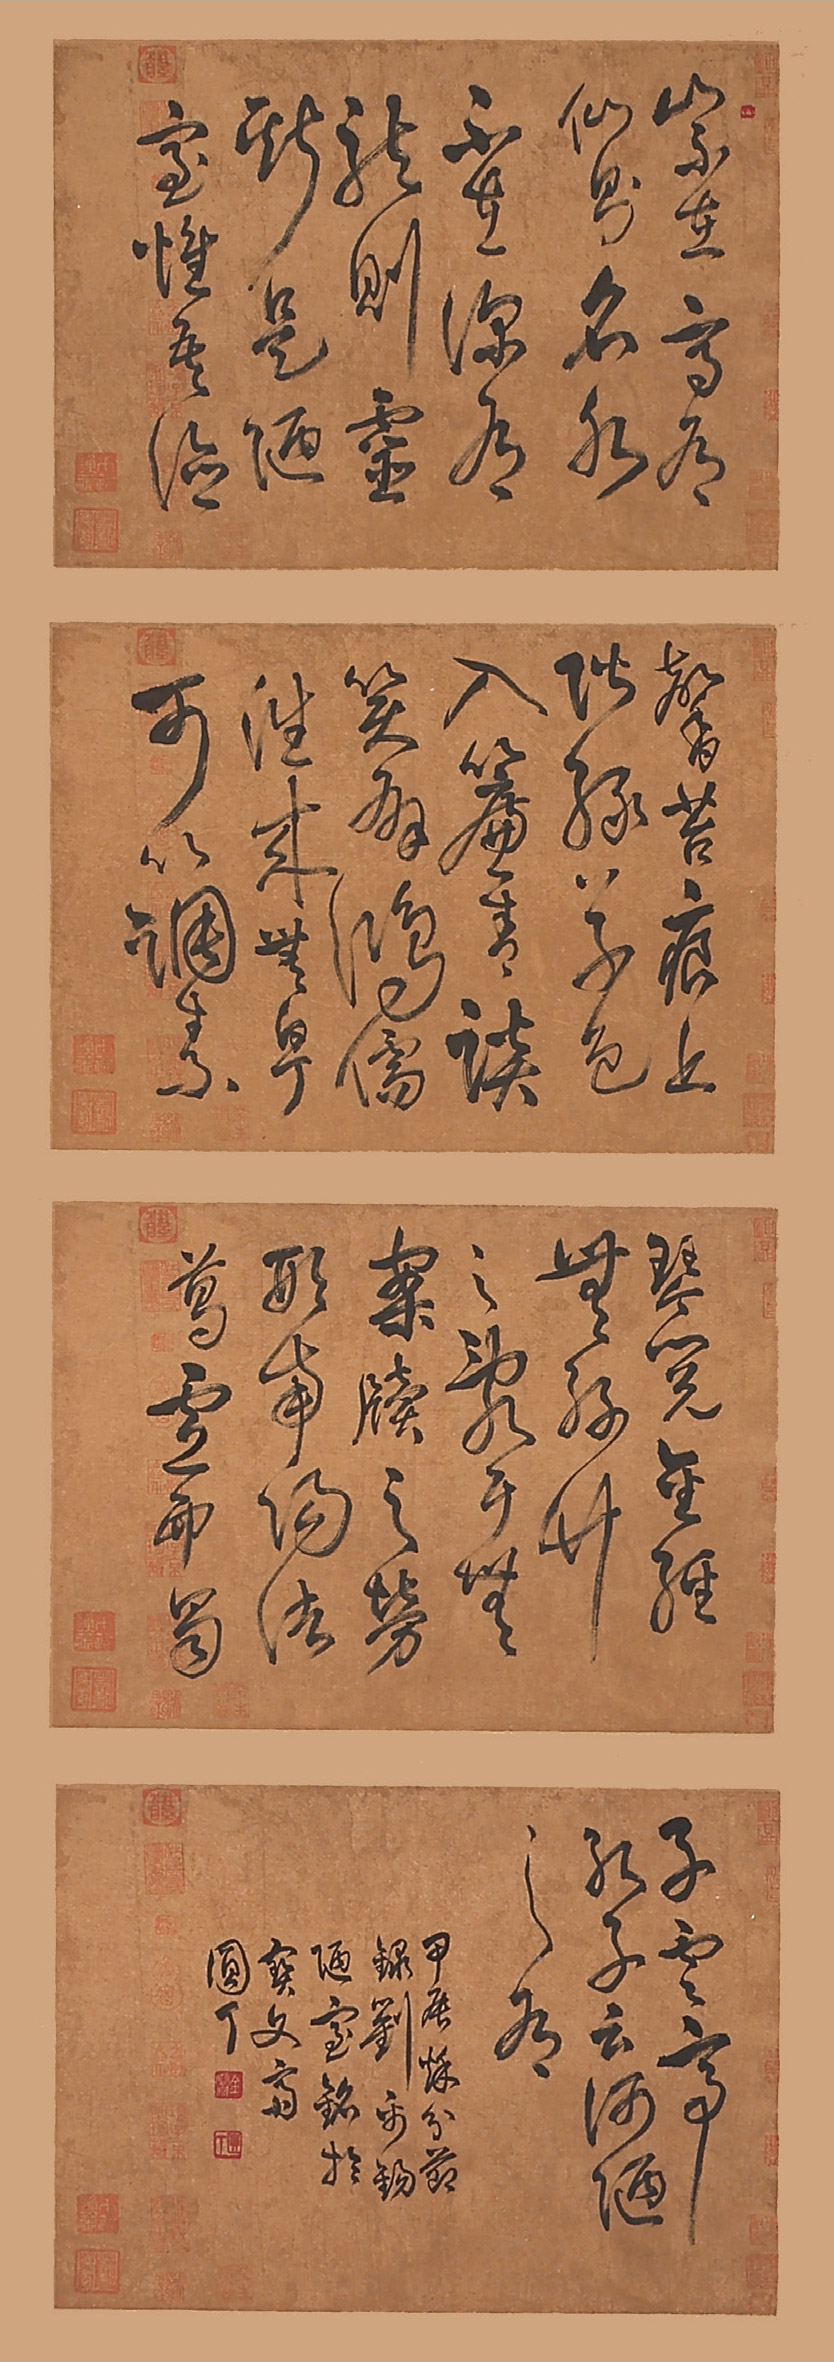 山不在高有
仙則名水
不在深有
龍則靈
斯是陋
室惟吾德
馨苔痕上
階綠草色
入簾青談
笑有鴻儒
往來無白丁
可以調素
琴閱金經
無絲竹
之亂耳無
案牘之勞
形南陽諸
葛廬西蜀
子雲亭
孔子云何陋
之有
甲辰秋分節
錄劉禹錫
陋室銘於
寶文齋
園丁